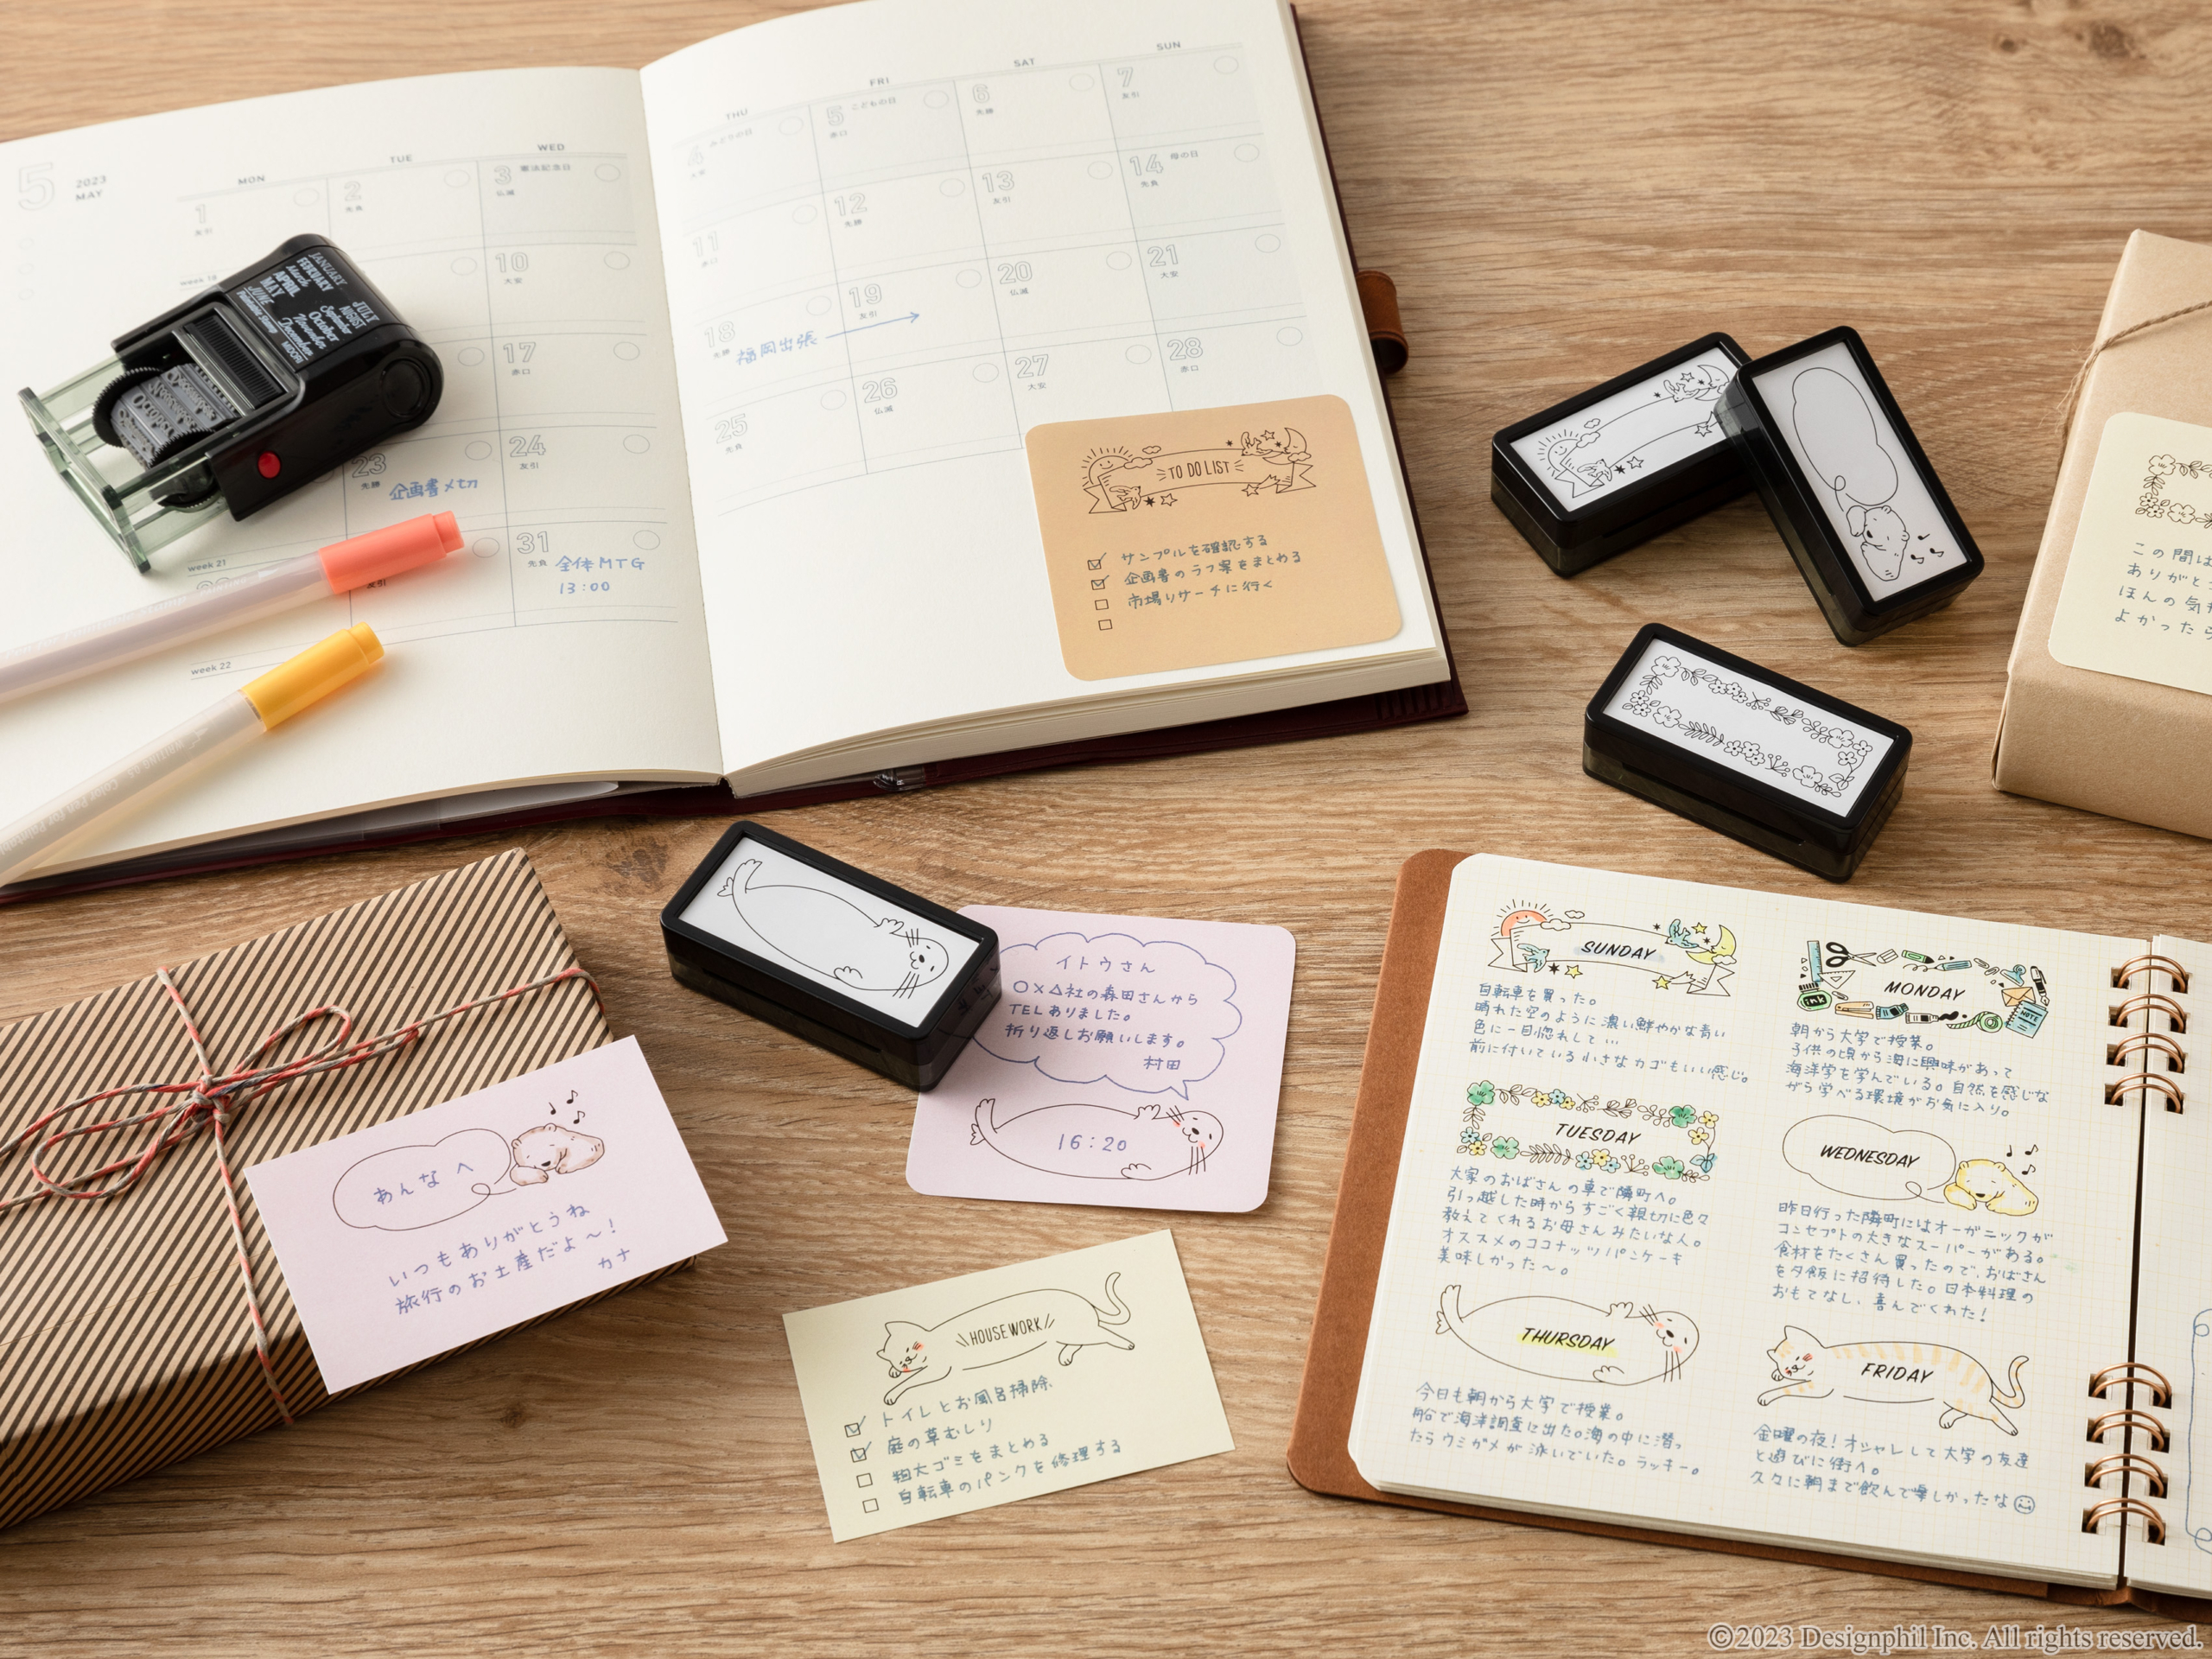 5
2023
MAY
MON
TUE
WED
1
友引
2
先負
3 憲法記念日
仏滅
week 18
10
大安
17
赤口
23
先勝
企画書〆切
24
友引
week 21
友引
31
先負
全体MTG
13:00
week 22
THU
FRI
SAT
SUN
4 みどりの日
大安
5 こどもの日
赤口
6
先勝
7
友引
11
赤口
12
先勝
13
友引
14 母の日
先負
18
先勝
福岡出張
19
友引
20
仏滅
21
大安
25
先負
26
仏滅
27
大安
28
赤口
JANUARY
FEBRUARY
March
APRIL
MAY
JUNE
JULY
AUGUST
September
October
November
December
Paintable Stamp
MIDORI
TO DO LIST
サンプルを確認する
企画書のラフ案をまとめる
市場リサーチに行く
この間は
ありがと
ほんの気
よかったら
イトウさん
○×△社の森田さんから
TELありました。
折り返しお願いします。
村田
16:20
あんなへ
いつもありがとうね
旅行のお土産だよ〜!
カナ
HOUSEWORK
トイレとお風呂掃除
庭の草むしり
粗大ゴミをまとめる
自転車のパンクを修理する
SUNDAY
自転車を買った。
晴れた空のように濃い鮮やかな青い
色に一目惚れして…
前に付いている小さなカゴもいい感じ。
MONDAY
ink
NOTE
朝から大学で授業。
子供の頃から海に興味があって
海洋学を学んでいる。自然を感じな
がら学べる環境がお気に入り。
TUESDAY
大家のおばさんの車で隣町へ。
引っ越した時からすごく親切に色々
教えてくれるお母さんみたいな人。
オススメのココナッツパンケーキ
美味しかった〜。
WEDNESDAY
昨日行った隣町にはオーガニックが
コンセプトの大きなスーパーがある。
食材をたくさん買ったので、おばさん
を夕飯に招待した。日本料理の
おもてなし、喜んでくれた!
THURSDAY
今日も朝から大学で授業。
船で海洋調査に出た。海の中に潜っ
たらウミガメが泳いでいた。ラッキー。
FRIDAY
金曜の夜!オシャレして大学の友達
と遊びに街へ。
久々に朝まで飲んで楽しかったな
©2023 Designphil Inc. All rights reserved.